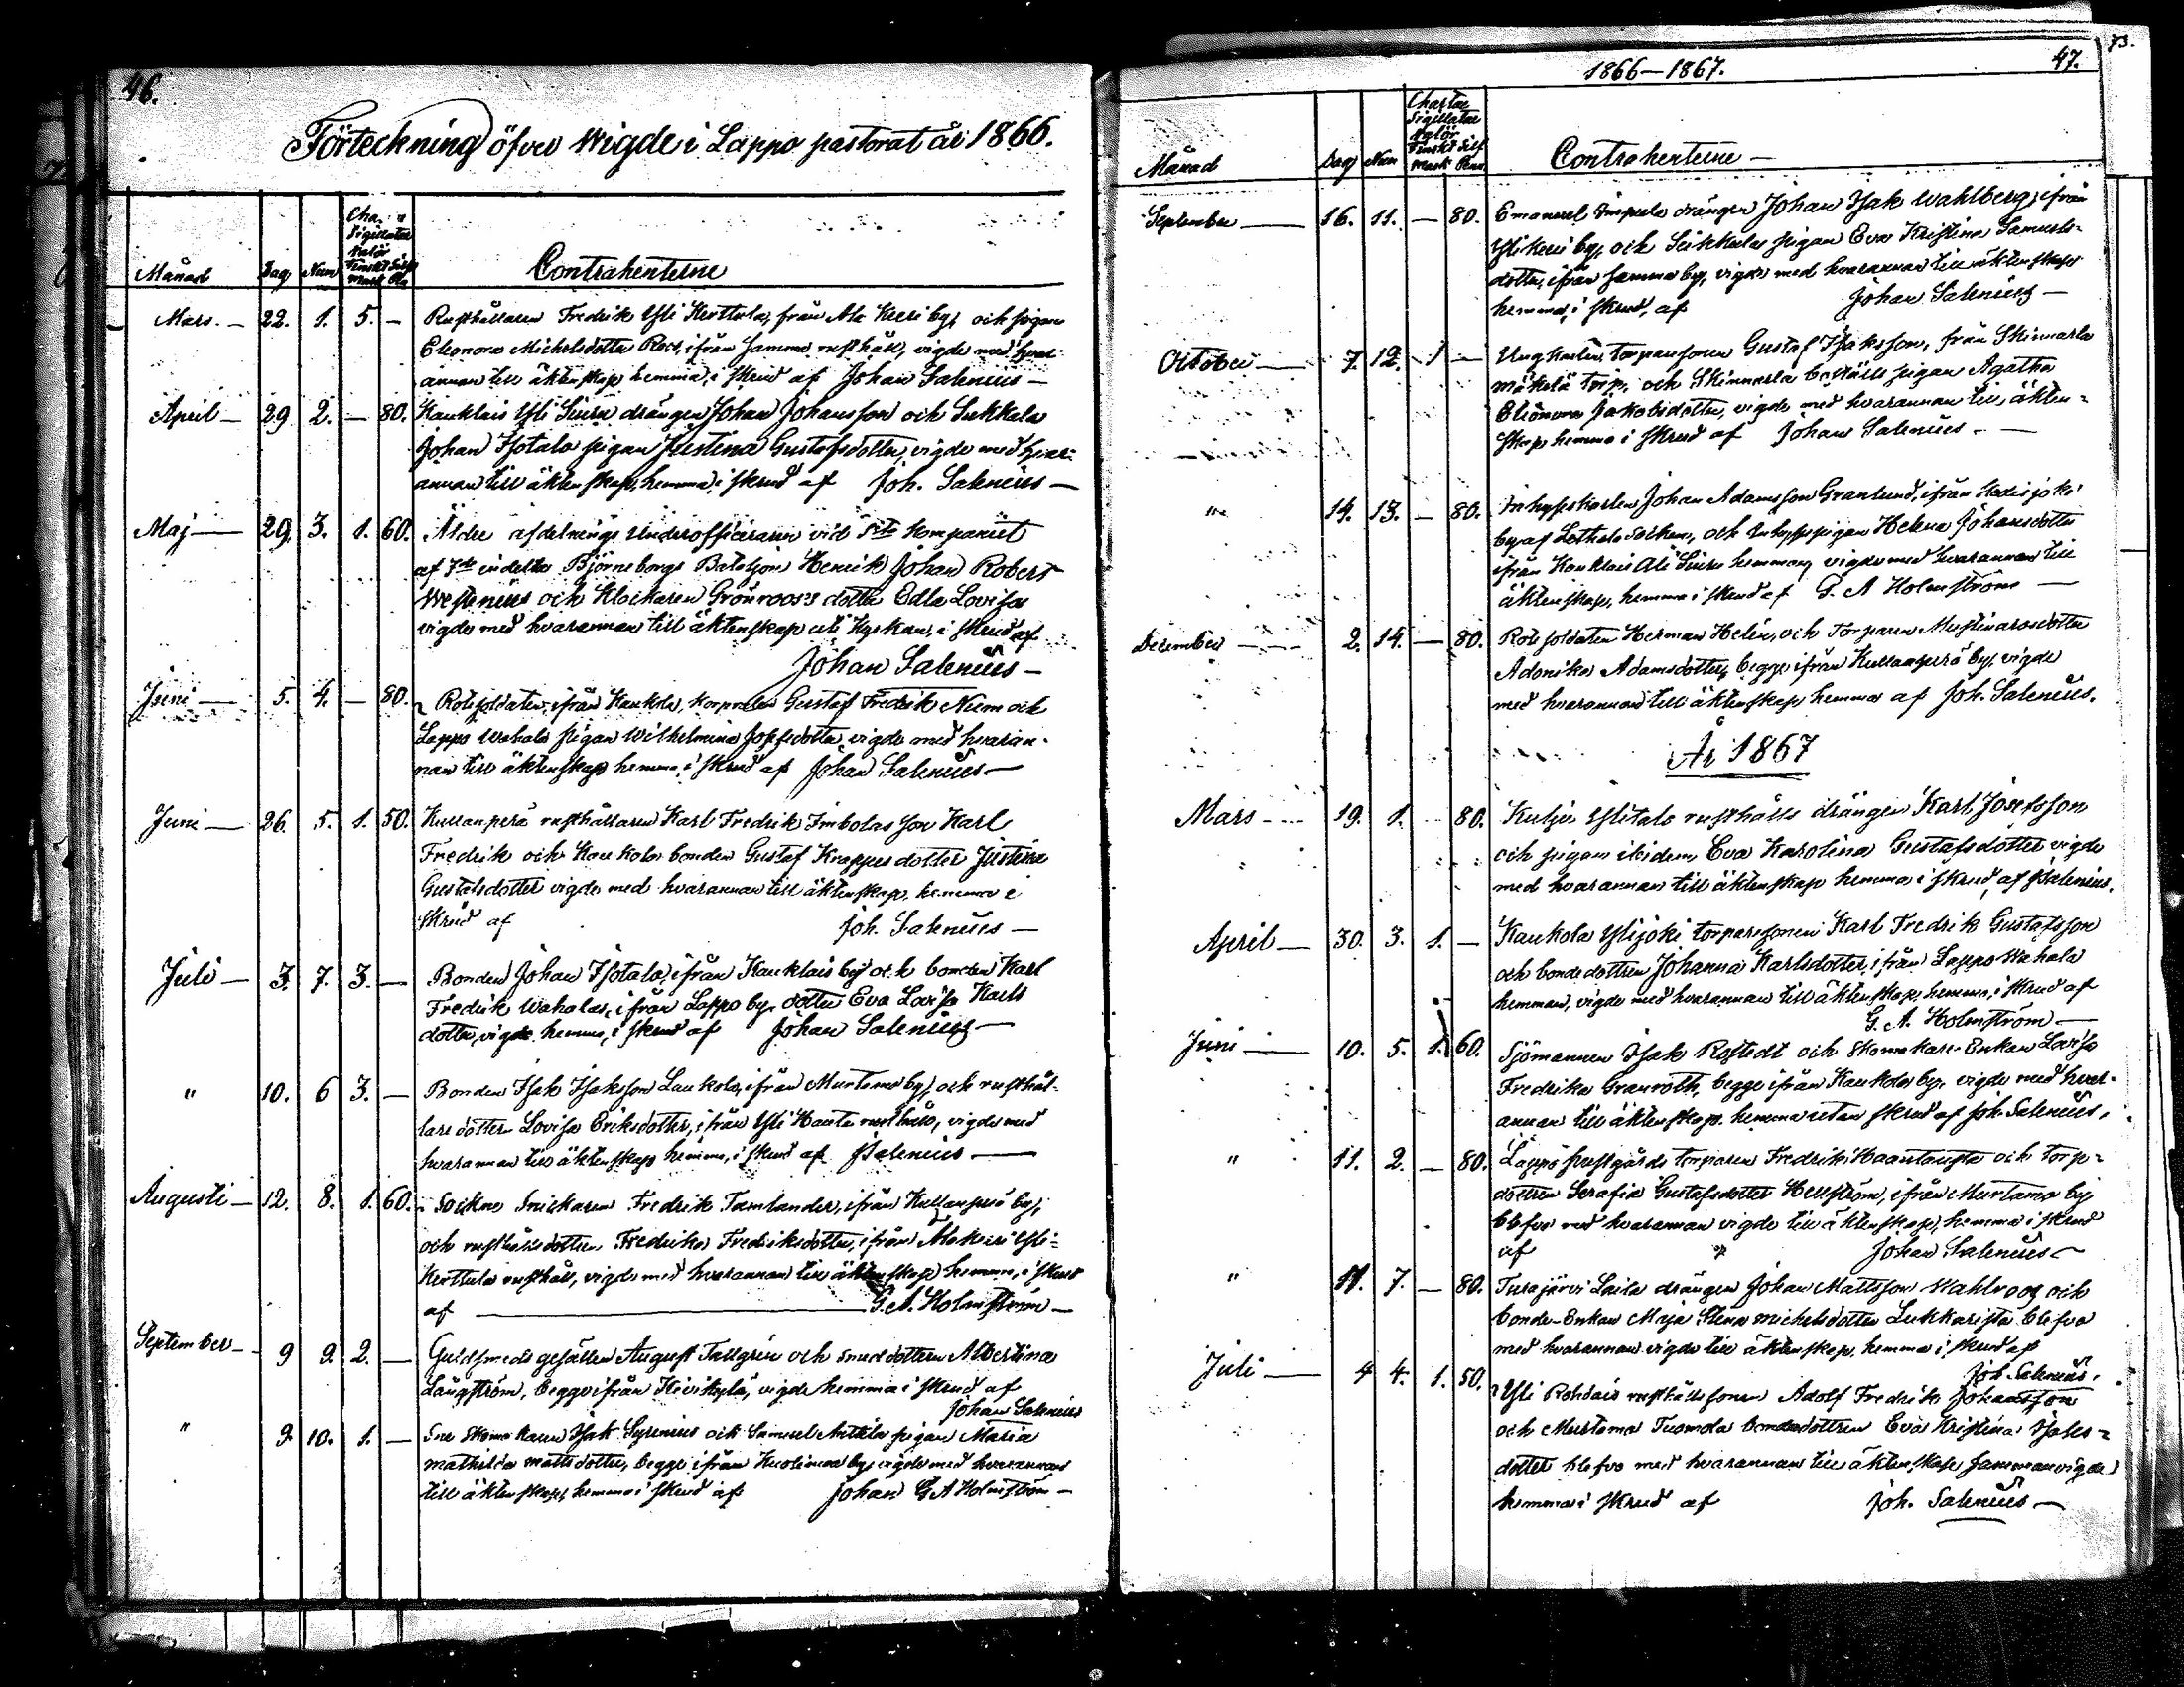 46.
Förteckning öfver Wigde i Lappo pastorat år 1866.
Månad Dag Num Sigillatæ valör Finskt Silf Mark Contrahenterne
Mars. — 22. 1. 5. — Rusthållaren Fredrik Yli Kerttula, från Ala Keeri by, och pigan
Eleonora Michelsdotter ifrån samma rusthåll, vigde med hvar-
annan till äktenskap hemma, i skrud af Johan Salenius —
April — 29 2. — 80. Kauklais Yli Siuru drängen Johan Johansson och Sukkala
Johan Isotalo pigan Justina Gustafsdotter, vigde med hvar-
annan till äktenskap, hemma, i skrud af Joh. Salenius —
Maj — 29. 3. 1. 60. Äldre afdelnings Underofficeraren vid Kompaniet
af indelta Björneborgs Bataljon Henrik Johan Robert
Westenius och Klockaren Grönroos's dotter Edla Lovisa
vigde med hvarannan till äktenskap uti Kyrkan, i skrud af
Johan Salenius —
Juni — 5. 4. — 80. Rotesoldaten, ifrån Kaukola, Korpralen Gustaf Fredrik Niem och
Lappo Wahala pigan Wilhelmina Josefsdotter, vigde med hvaran-
nan till äktenskap hemma, i skrud af Johan Salenius —
Juni — 26. 5. 1. 50. Kullanperä rusthållaren Karl FredrikImbolas son Karl
Fredrik och Kaukola bonden Gustaf Krappus dotter Justina
Gustafsdotter vigde med hvarannan till äktenskap, hemma i
skrud af Joh. Salenius —
Juli — 3. 7. 3. — Bonden Johan Isotalo, ifrån Kauklais by och bonden Karl
Fredrik Wahalas, ifrån Lappo by, dotter Eva Lovisa Karls
dotter, vigde hemma, i skrud af Johan Salenius —
" 10. 6 3. — Bonden Isak Isaksson Laukola, ifrån Murtamo by, och rusthål-
lare dottern Lovisa Eriksdotter, ifrån Yli rusthåll, vigde med
hvarannan till äktenskap hemma, i skrud af JSalenius —
Augusti — 12. 8. 1. 60. Sockne Snickaren Fredrik Tamlander, ifrån Kullanperä by,
och rusthålls dottern Fredrika Fredriksdotter, ifrån Alakeeri Yli-
Kerttula rusthåll, vigde med hvarannan till äktenskap hemma, i skrud
af — G. A. Holmström —
September — 9 9. 2. — Guldsmeds gesällen August Tallgrén och smeddottern Albertina
Långström, begge ifrån Kivikylä, vigde hemma i skrud af
Johan Salenius
" 9. 10. 1. — Skomakaren Isak Syrenius och Samuel Anttila pigan Maria
Mathilda Mattsdotter, begge ifrån Kuolimaa by, vigde med hvarannan
till äktenskap, hemma i skrud af Johan G A Holmström —
1866—1867. 47.
73.
Månad Dag Num Chartæ Sigillatæ valör Finskt Silf Mark Penn. Contrahenterne —
September — 16. 11. — 80. Emanuel drängen Johan Isak Wahlberg, ifrån
Ylikeeri by, och Sukkala pigan Eva Kristina Samuels-
dotter, ifrån samma by, vigde med hvarannan till äktenskap
hemma, i skrud, af Johan Salenius —
October — 7. 12. 1 — Ungkarlen, torparesonen Gustaf Isaksson, från Skinnarla
Mäkelä torp, och Skinnarla boställs pigan Agatha
Eleonora Jakobsdotter, vigde med hvarannan till äkten-
skap hemma i skrud af Johan Salenius —
" 14. 13. — 80. Inhyseskarlen Johan Adamsson Granlund, ifrån
by af Letala Socken, och Inhysespigan Helena Johansdotter
ifrån Kauklais Ali Siuru hemman, vigde med hvarannan till
äktenskap, hemma i skrud af G. A Holmström —
December — 2. 14. — 80. Rote soldaten Herman Helin, och Torparen
Adamsdotter, begge ifrån Kullanperä by, vigde
med hvarannan till äktenskap hemma af Joh. Salenius.
År 1867
Mars — 19. 1. 80. Kuljo Ylitalo rusthålls drängen Karl Josefsson
och pigan ibidem Eva Karolina Gustafsdotter vigde
med hvarannan till äktenskap hemma i skrud, af JSalenius.
April — 30. 3. 1. — Kaukola Ylijoki torparesonen Karl Fredrik Gustafsson
och bondedottren Johanna Karlsdotter, ifrån Lappo Wahala
hemman, vigde med hvarannan till äktenskap, hemma, i skrud af
G. A. Holmström —
Juni — 10. 5. 1. 60. Sjömannen Isak Rostedt och Skomakare Enkan Lovisa
Fredrika Granroth, begge ifrån Kaukola by, vigde med hvar-
annan till äktenskap. hemma utan skrud af Joh Salenius.
" 11. 2. — 80. Lappo prestgårds torparen Fredrik Haantausta och torp-
dottren Serafia Gustafsdotter Hellström, ifrån Murtamo by
blefvo med hvarannan vigde till äktenskap, hemma i skrud
af Johan Salenius —
" 11. 7. — 80. Turajärvi Laila drängen Johan Mattsson Wahlroos och
bonde-Enkan Maja Stina Michelsdotter Lukkarista blefvo
med hvarannan vigde till äktenskap, hemma i skrud af
Joh. Salenius.
Juli — 4 4. 1. 50. Yli Rohdais rusthålls sonen Adolf Fredrik Johansson
och Murtamo Tuomola bondedottren Eva Kristina Isaks-
dotter blefvo med hvarannan till äktenskap sammanvigde
hemma i skrud af Joh. Salenius —